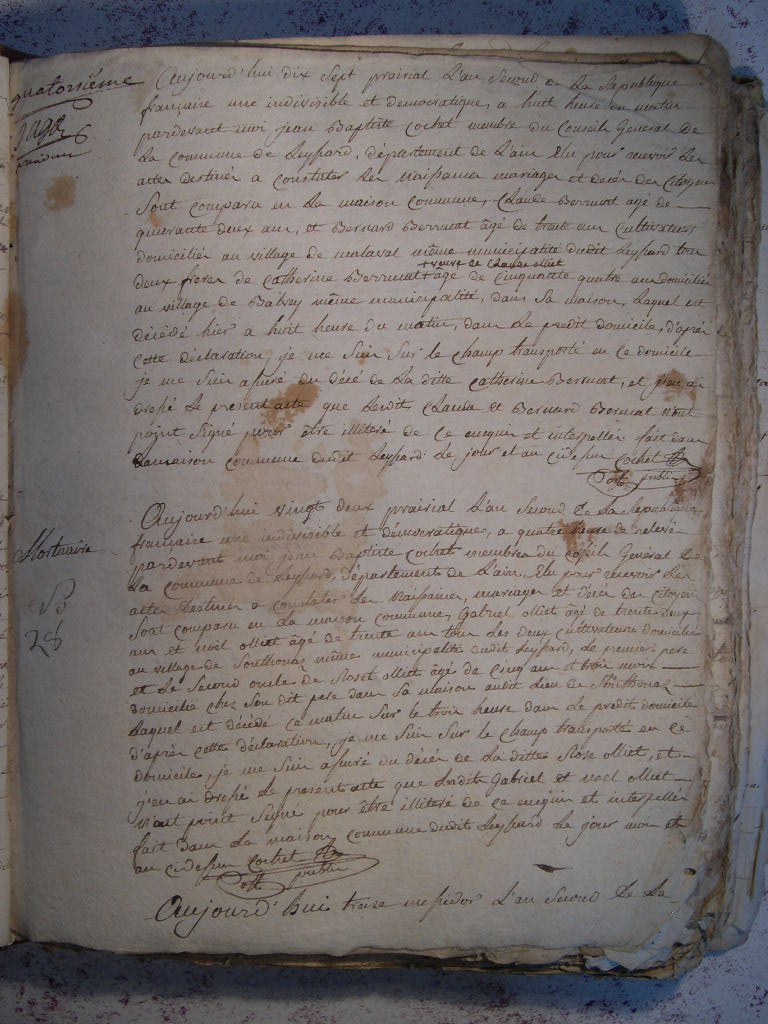 quatorsième
page
Aujourd'hui dix sept prairial L'an Second de La Republique
française une indivisible et democratique, a huit heure du matin
pardevant moi jean Baptiste Cochet membre du Conseil General de
La commune de Leyssard, département de L'ain Elu pour recevoir Les
actes destiné a constater Les Naissances mariages et décès des Citoyens
Sont comparu en La maison Commune, Claude Berrunat âgé de
quarante deux ans, et Bernard Berrunat âgé de trente ans Cultivateurs
domiciliés au village de malaval même municipalité dudit Leyssard tous
+ veuve de Claude olliet
deux freres de Catherine Berrunat + âgé de cinquante quatre ans domiciliée
au village de Balvay même municipalité, dans Sa maison, Laquel est
décédé hier a huit heure du matin, dans Le predit domicile, d'aprés
cette déclaration je me Suis Sur le champ transporté en Ce domicile
je me Suis assuré du décé de La ditte Catherine Berrunat, et j'en ai
dressé Le présent acte que Lesdits Claude et Bernard Berrunat n'ont
point Signé pour être illiteré de Ce enquin et interpellés fait dans
La maison commune dudit Leyssard Le jour et an cidessus Cochet
off public
Mortuaire
28
Aujourd'hui vingt deux prairial L'an Second de La Republique
française une indivisible et démocratique, a quatre heure de relevé
pardevant moi jean Baptiste Cochet membre du conseil General de
La commune de Leyssard, département de L'ain, Elu pour recevoir Les
actes Destiné a constater Les Naissances, mariages et décés des Citoyens
Sont comparu en La maison commune, Gabriel olliet âgé de trente deux
ans et noël olliet âgé de trente ans tous Les deux Cultivateurs domiciliés
au village de Southonaz même municipalité dudit Leyssard, Le premier pere
et Le Second oncle de Rose olliet âgé de Cinq ans et trois mois
domicilié chez Son dit pere dans Sa maison audit Lieu de Southonaz
Laquel est décédé ce matin Sur les trois heure dans Le predit domicile
d'aprés cette déclaration, je me Suis Sur Le champ transporté en ce
domicile, je me Suis assuré du décés de La ditte Rose olliet, et
j'en ai dressé Le présent acte que Lesdits Gabriel et noël olliet
n'ont point Signé pour être illiteré de Ce enquin et interpellés
fait Dans La maison commune dudit Leyssard Le jour mois et
an cidessus Cochet
off public
Aujourd'hui treize messidor L'an Second de La